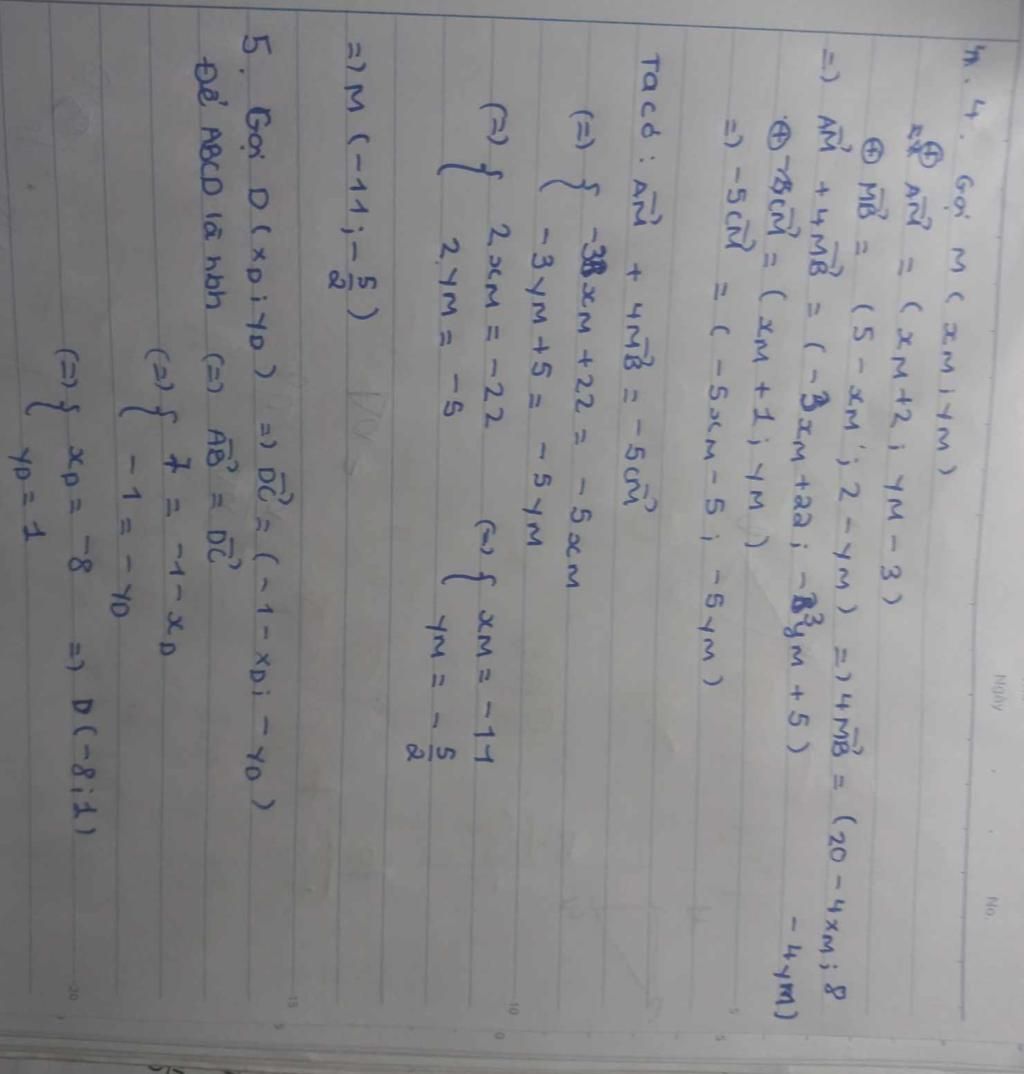 Ngày No.
4. Gọi M(xM; yM)
⊕ AM⃗ = (xM+2; yM-3)
⊕ MB⃗ = (5-xM; 2-yM) => 4MB⃗ = (20-4xM; 8
-4yM)
=> AM⃗ + 4MB⃗ = (-3xM+22; -3yM+5)
⊕ CM⃗ = (xM+1; yM)
=> -5CM⃗ = (-5xM-5; -5yM)
Ta có: AM⃗ + 4MB⃗ = -5CM⃗
(=) { -3xM+22 = -5xM
-3yM+5 = -5yM
(=) { 2xM = -22 (=) { xM = -11
2yM = -5 yM = -5/2
=> M(-11; -5/2)
5. Gọi D(xD; yD) => DC⃗ = (-1-xD; -yD)
Để ABCD là hbh (=) AB⃗ = DC⃗
(=) { 7 = -1-xD
-1 = -yD
(=) { xD = -8 => D(-8; 1)
yD = 1
5
10
15
20